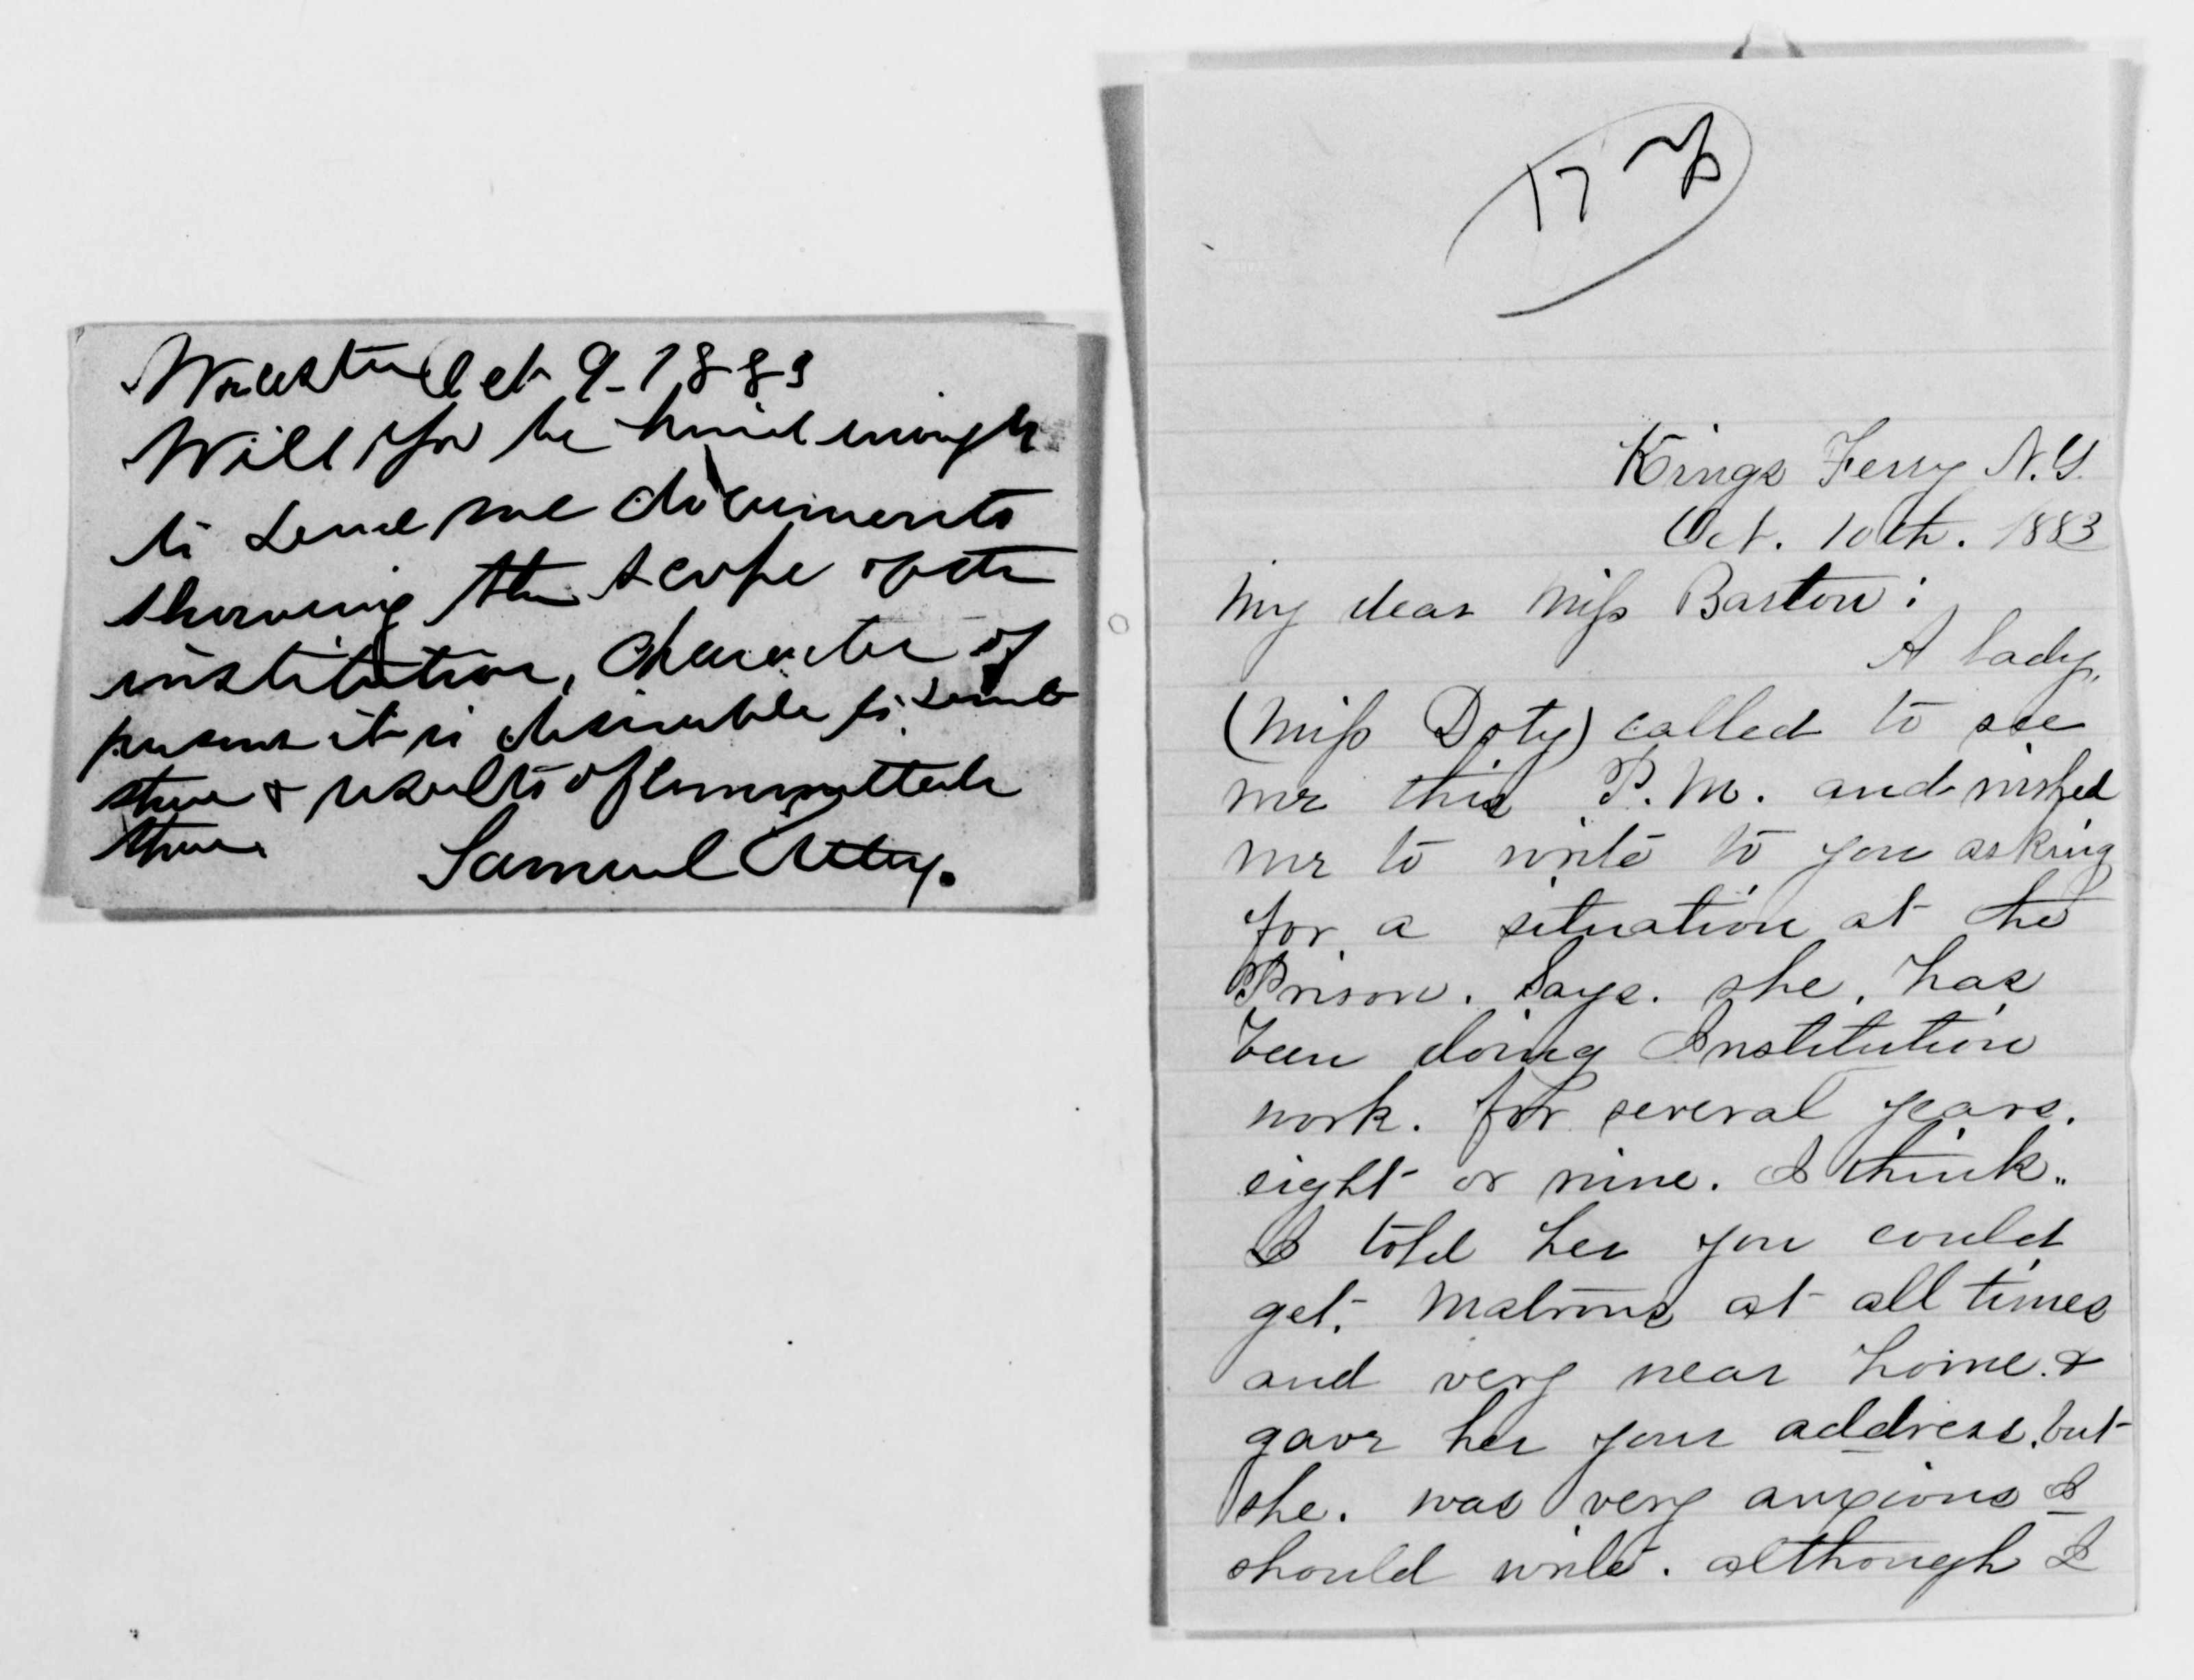 Worcester Oct 9-1883
Will you be kind enough
to send me documents
showing the scope of the
institution, character of
persons it is desirable to send
there & results of commitments
there
Samuel
17
Kings Ferry N.Y.
Oct. 10th. 1883
My dear Miss Barton:
A lady,
(Miss Doty) called to see
me this P.M. and wished
me to write to you asking
for a situation at the
Prison. Says. she. has
been doing Institution
work. for several years.
eight or nine. I think..
I told her you could
get. Matrons at all times
and very near home. &
gave her your address. but
she. was very anxious I
should write. although I